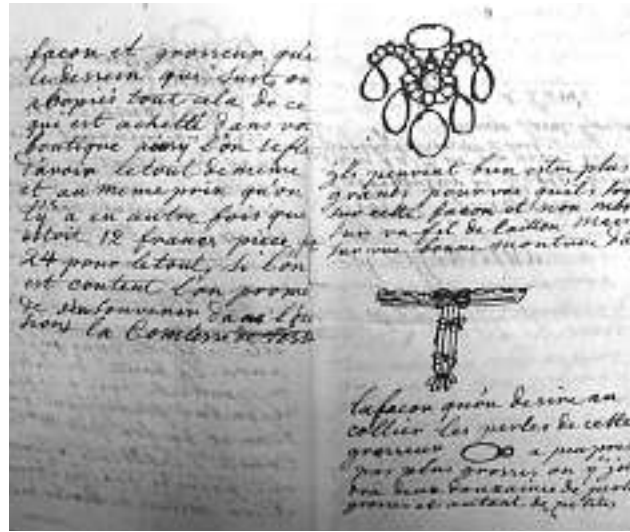 façon et grosseur qu'il
le dessein que suit ou
aboprés tout cela de ce
qui est achetté dans vo
boutique l'on
l'avoir le tout de meme
et au meme prix qu'on
l'y a eu autre fois que
estoit 12 francs piece
24 pour le tout, si l'on
est content l'on prome
de s'ensouvenir dans
la Comtesse de
ils peuvent bien estre plus
grands pourvus qu'ils soy
sur cette façon et non mon
sur un fil de laitton mais
sur une bonne monture
la façon qu'on desire au
collier les perles de cette
grosseur a peu pres
pas plus grosses on y joi
dra deux douzaines de perle
grosses et autant de petites